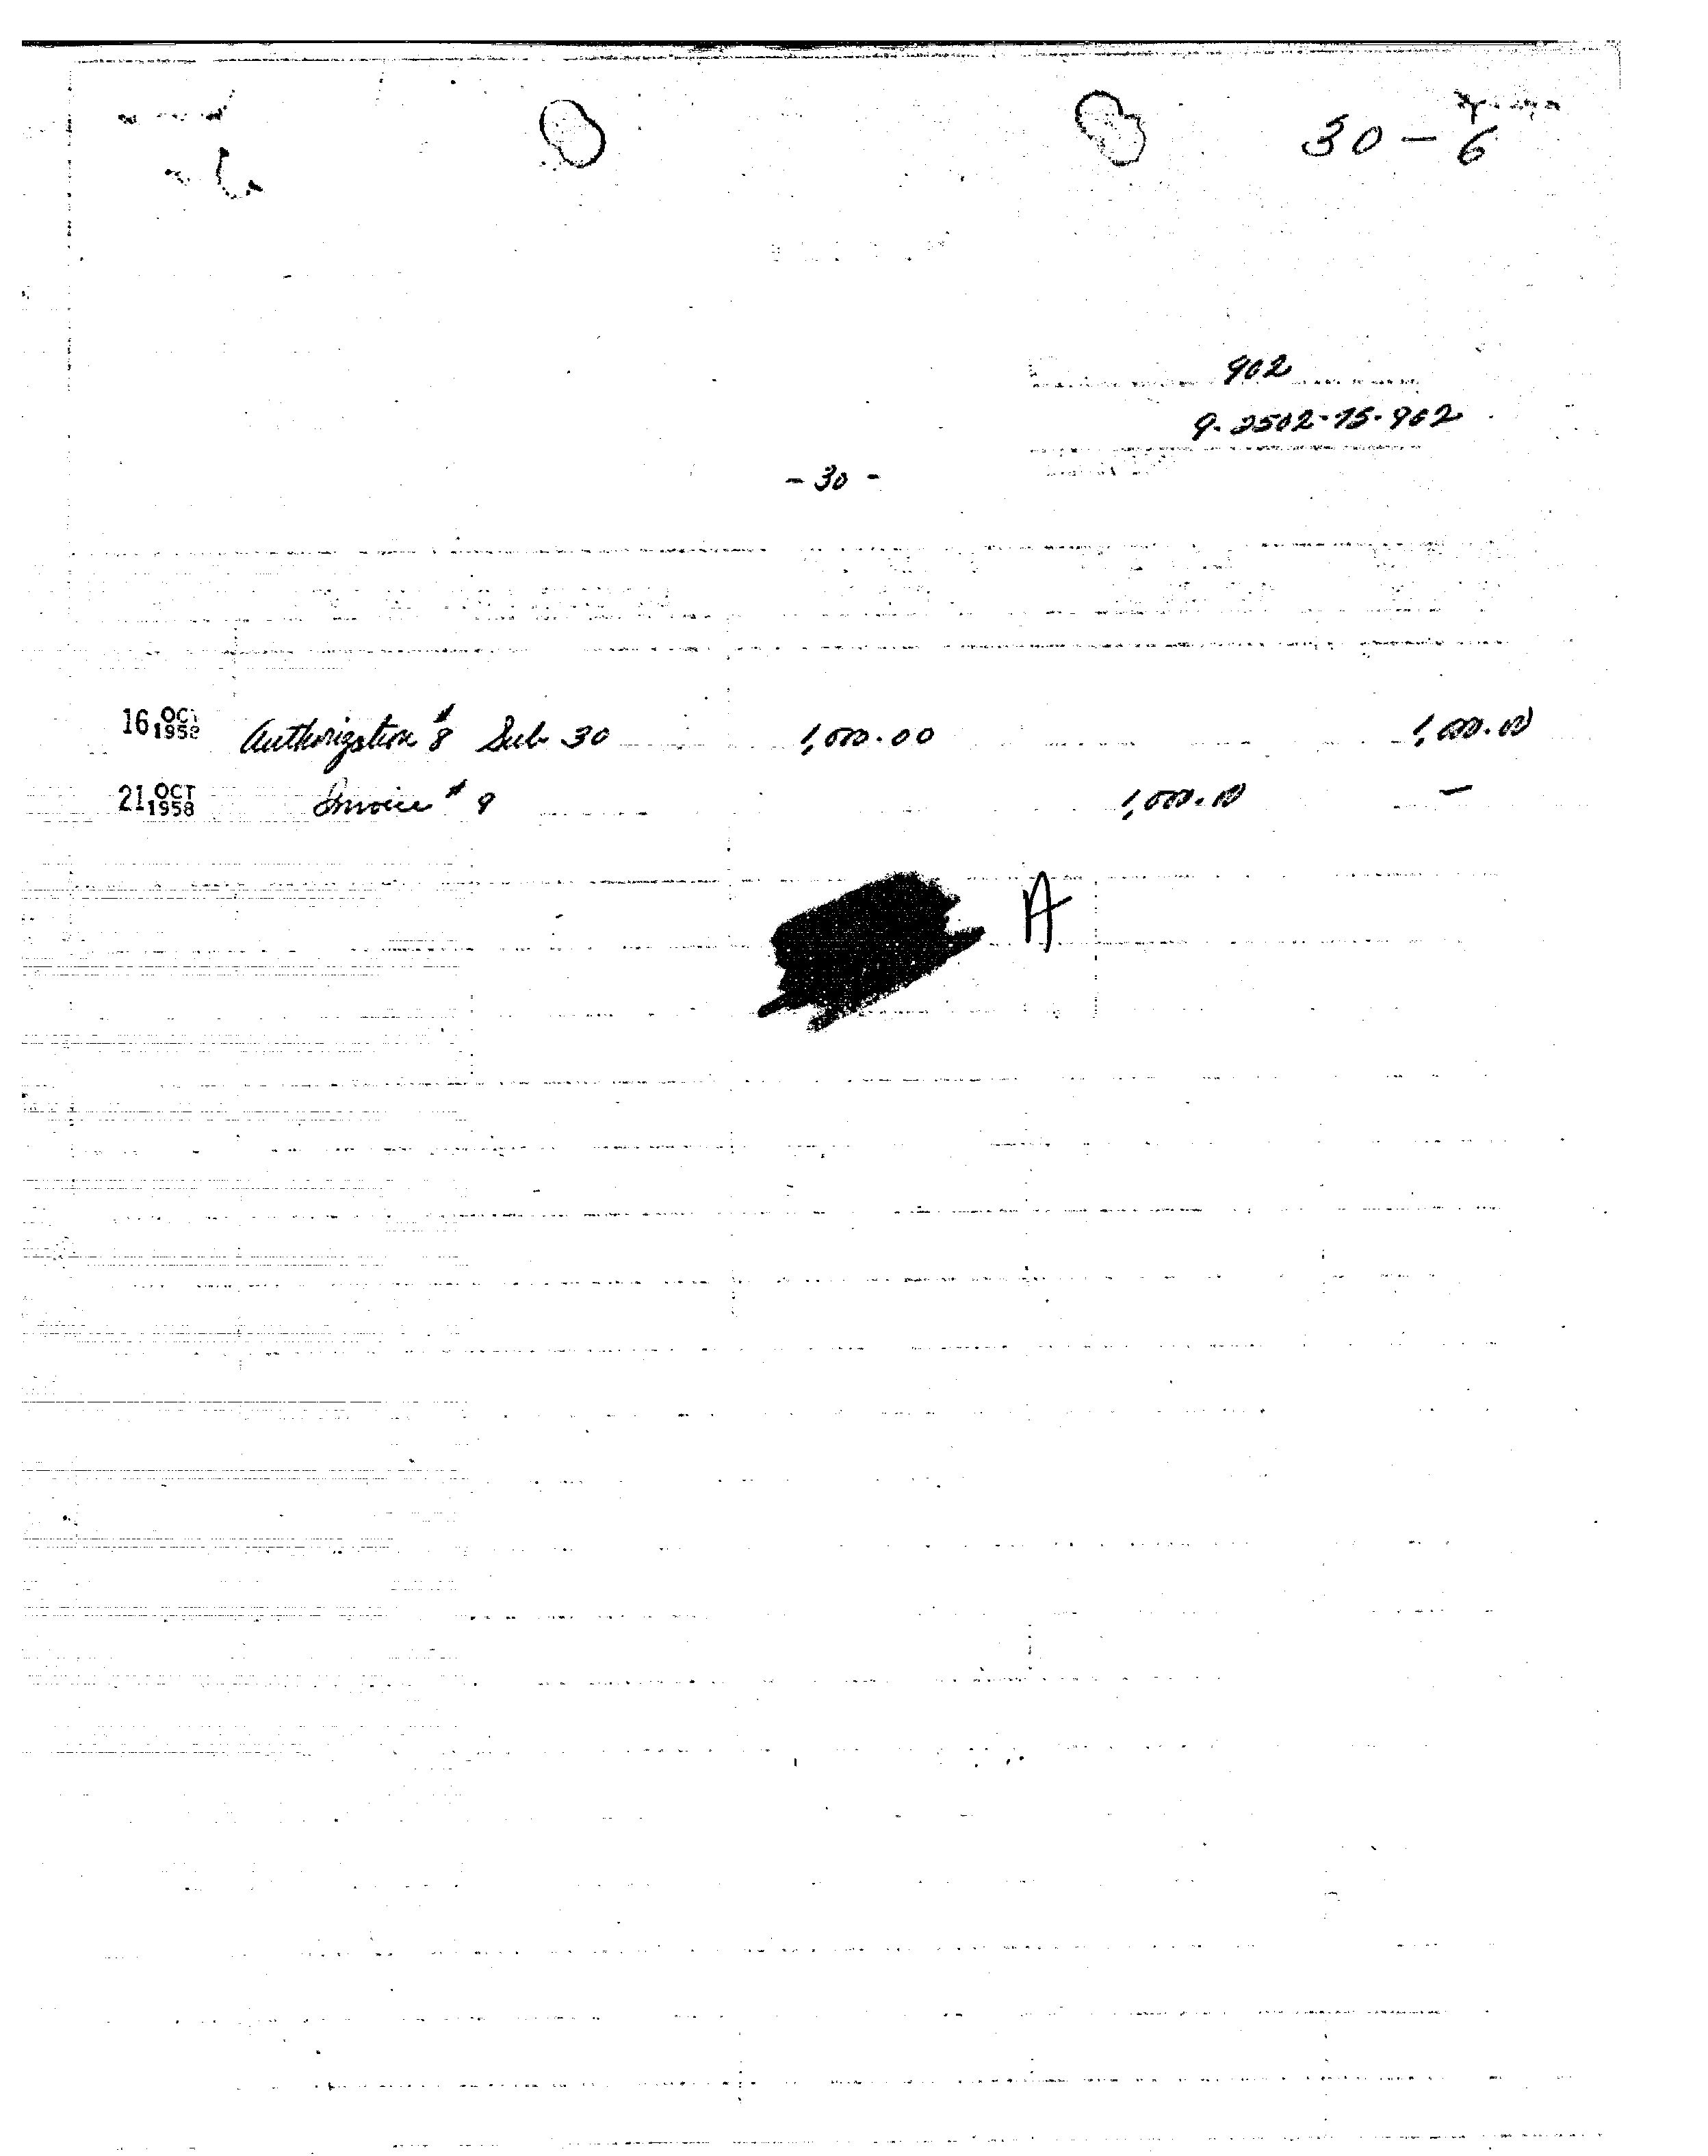 30 - 6
902
9-2502-75-902
- 30 -
16 OCT 1958 Authorization #8 Sub 30 1,000.00 1,000.00
21 OCT 1958 Invoice #9 1,000.00 —
A